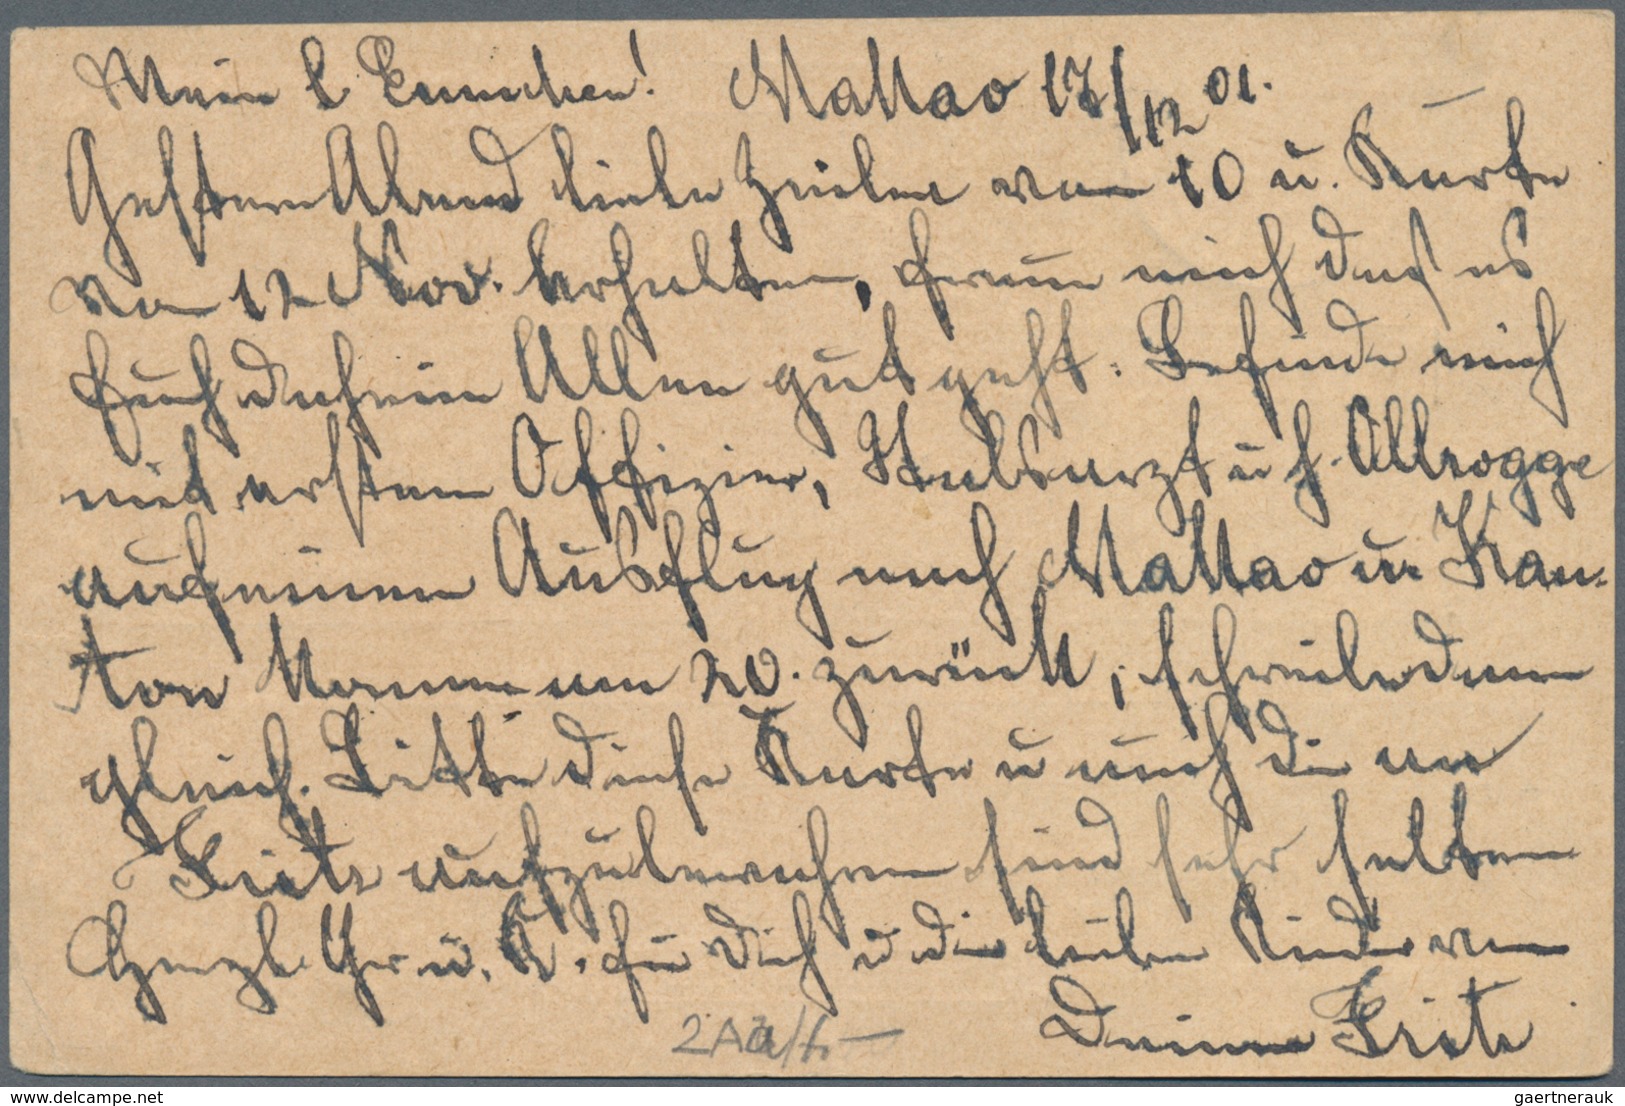 Mein l. Emmchen! Mattao 17/12 01.
Gestern Abend liebe Zeilen vom 10 u. Karte
vom 12 Nov. erhalten, freue mich daß es
Euch daheim Allen gut geht. Befinde mich
mit erstem Offizier, Stabsarzt u H. Allrogge
auf einem Ausflug nach Mattao u. Kan-
ton komme am 20. zurück, schreibe dann
gleich. Bitte diese Karte u auch die an
Fritz aufzubewahren sind sehr selten
Herzl. Gr u. K. für Dich u die lieben Kinder von
Deinem Fritz
2Aa/f. —
delcampe.net
gaertnerauk